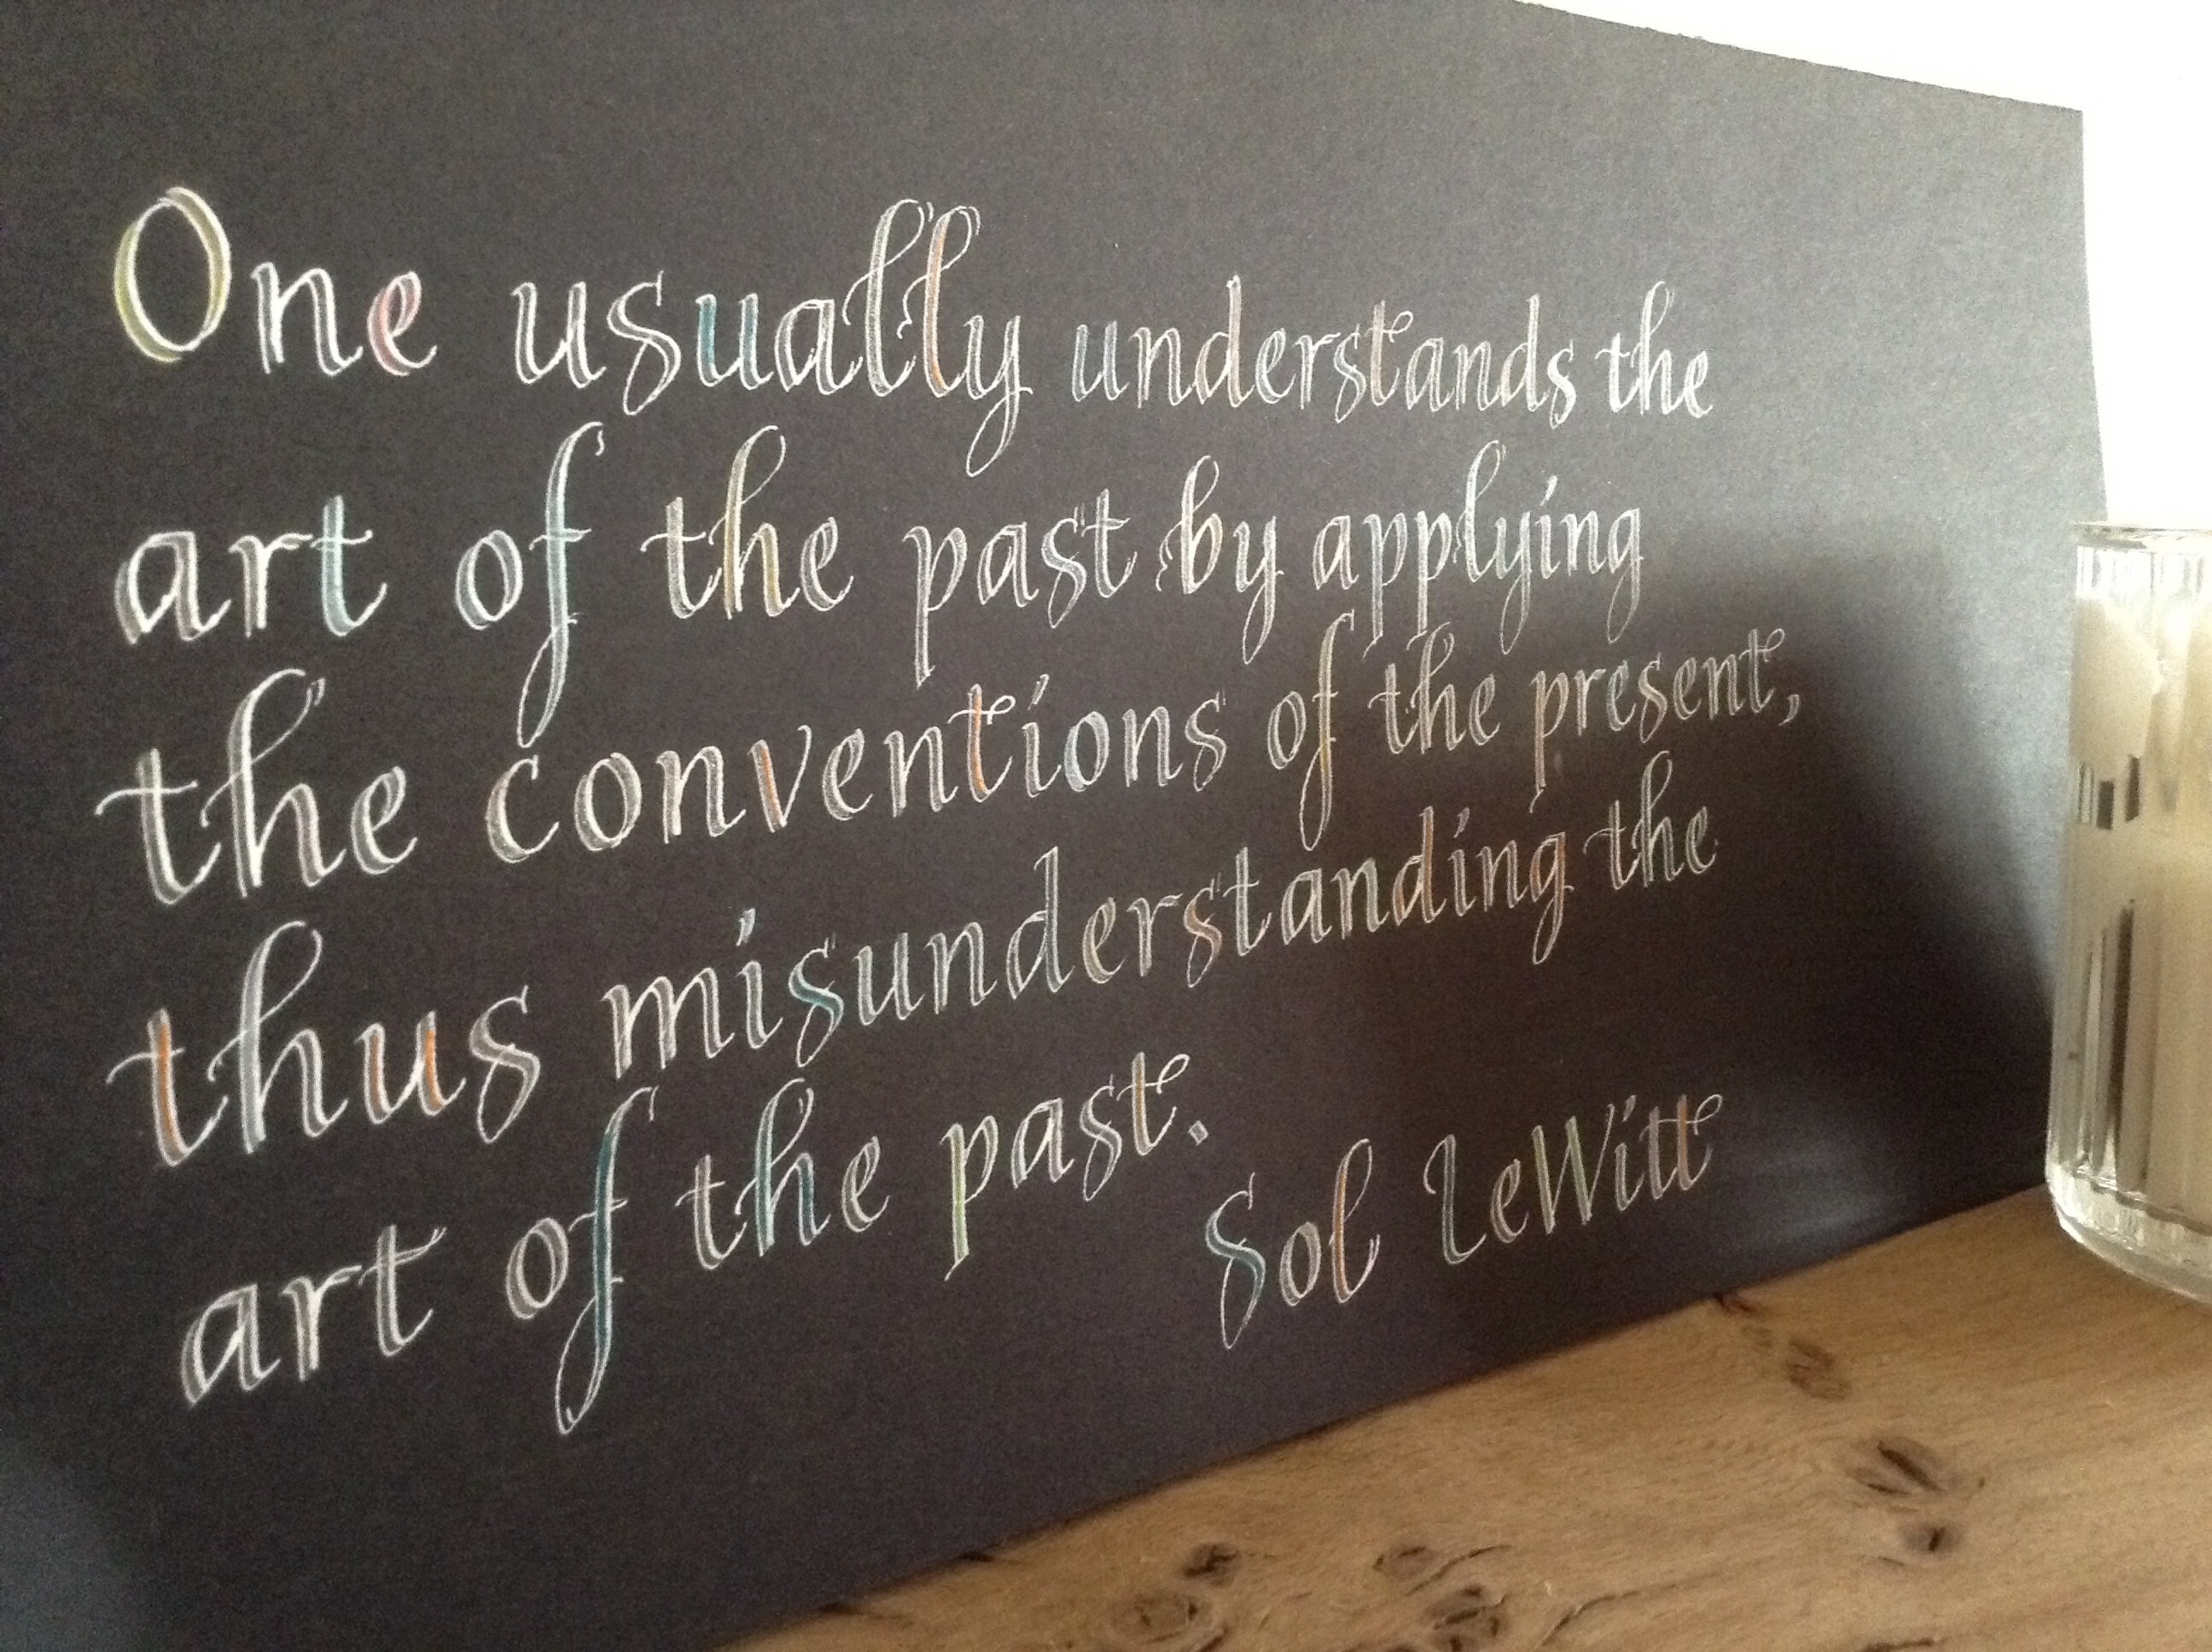 One usually understands the
art of the past by applying
the conventions of the present,
thus misunderstanding the
art of the past.
Sol LeWitt